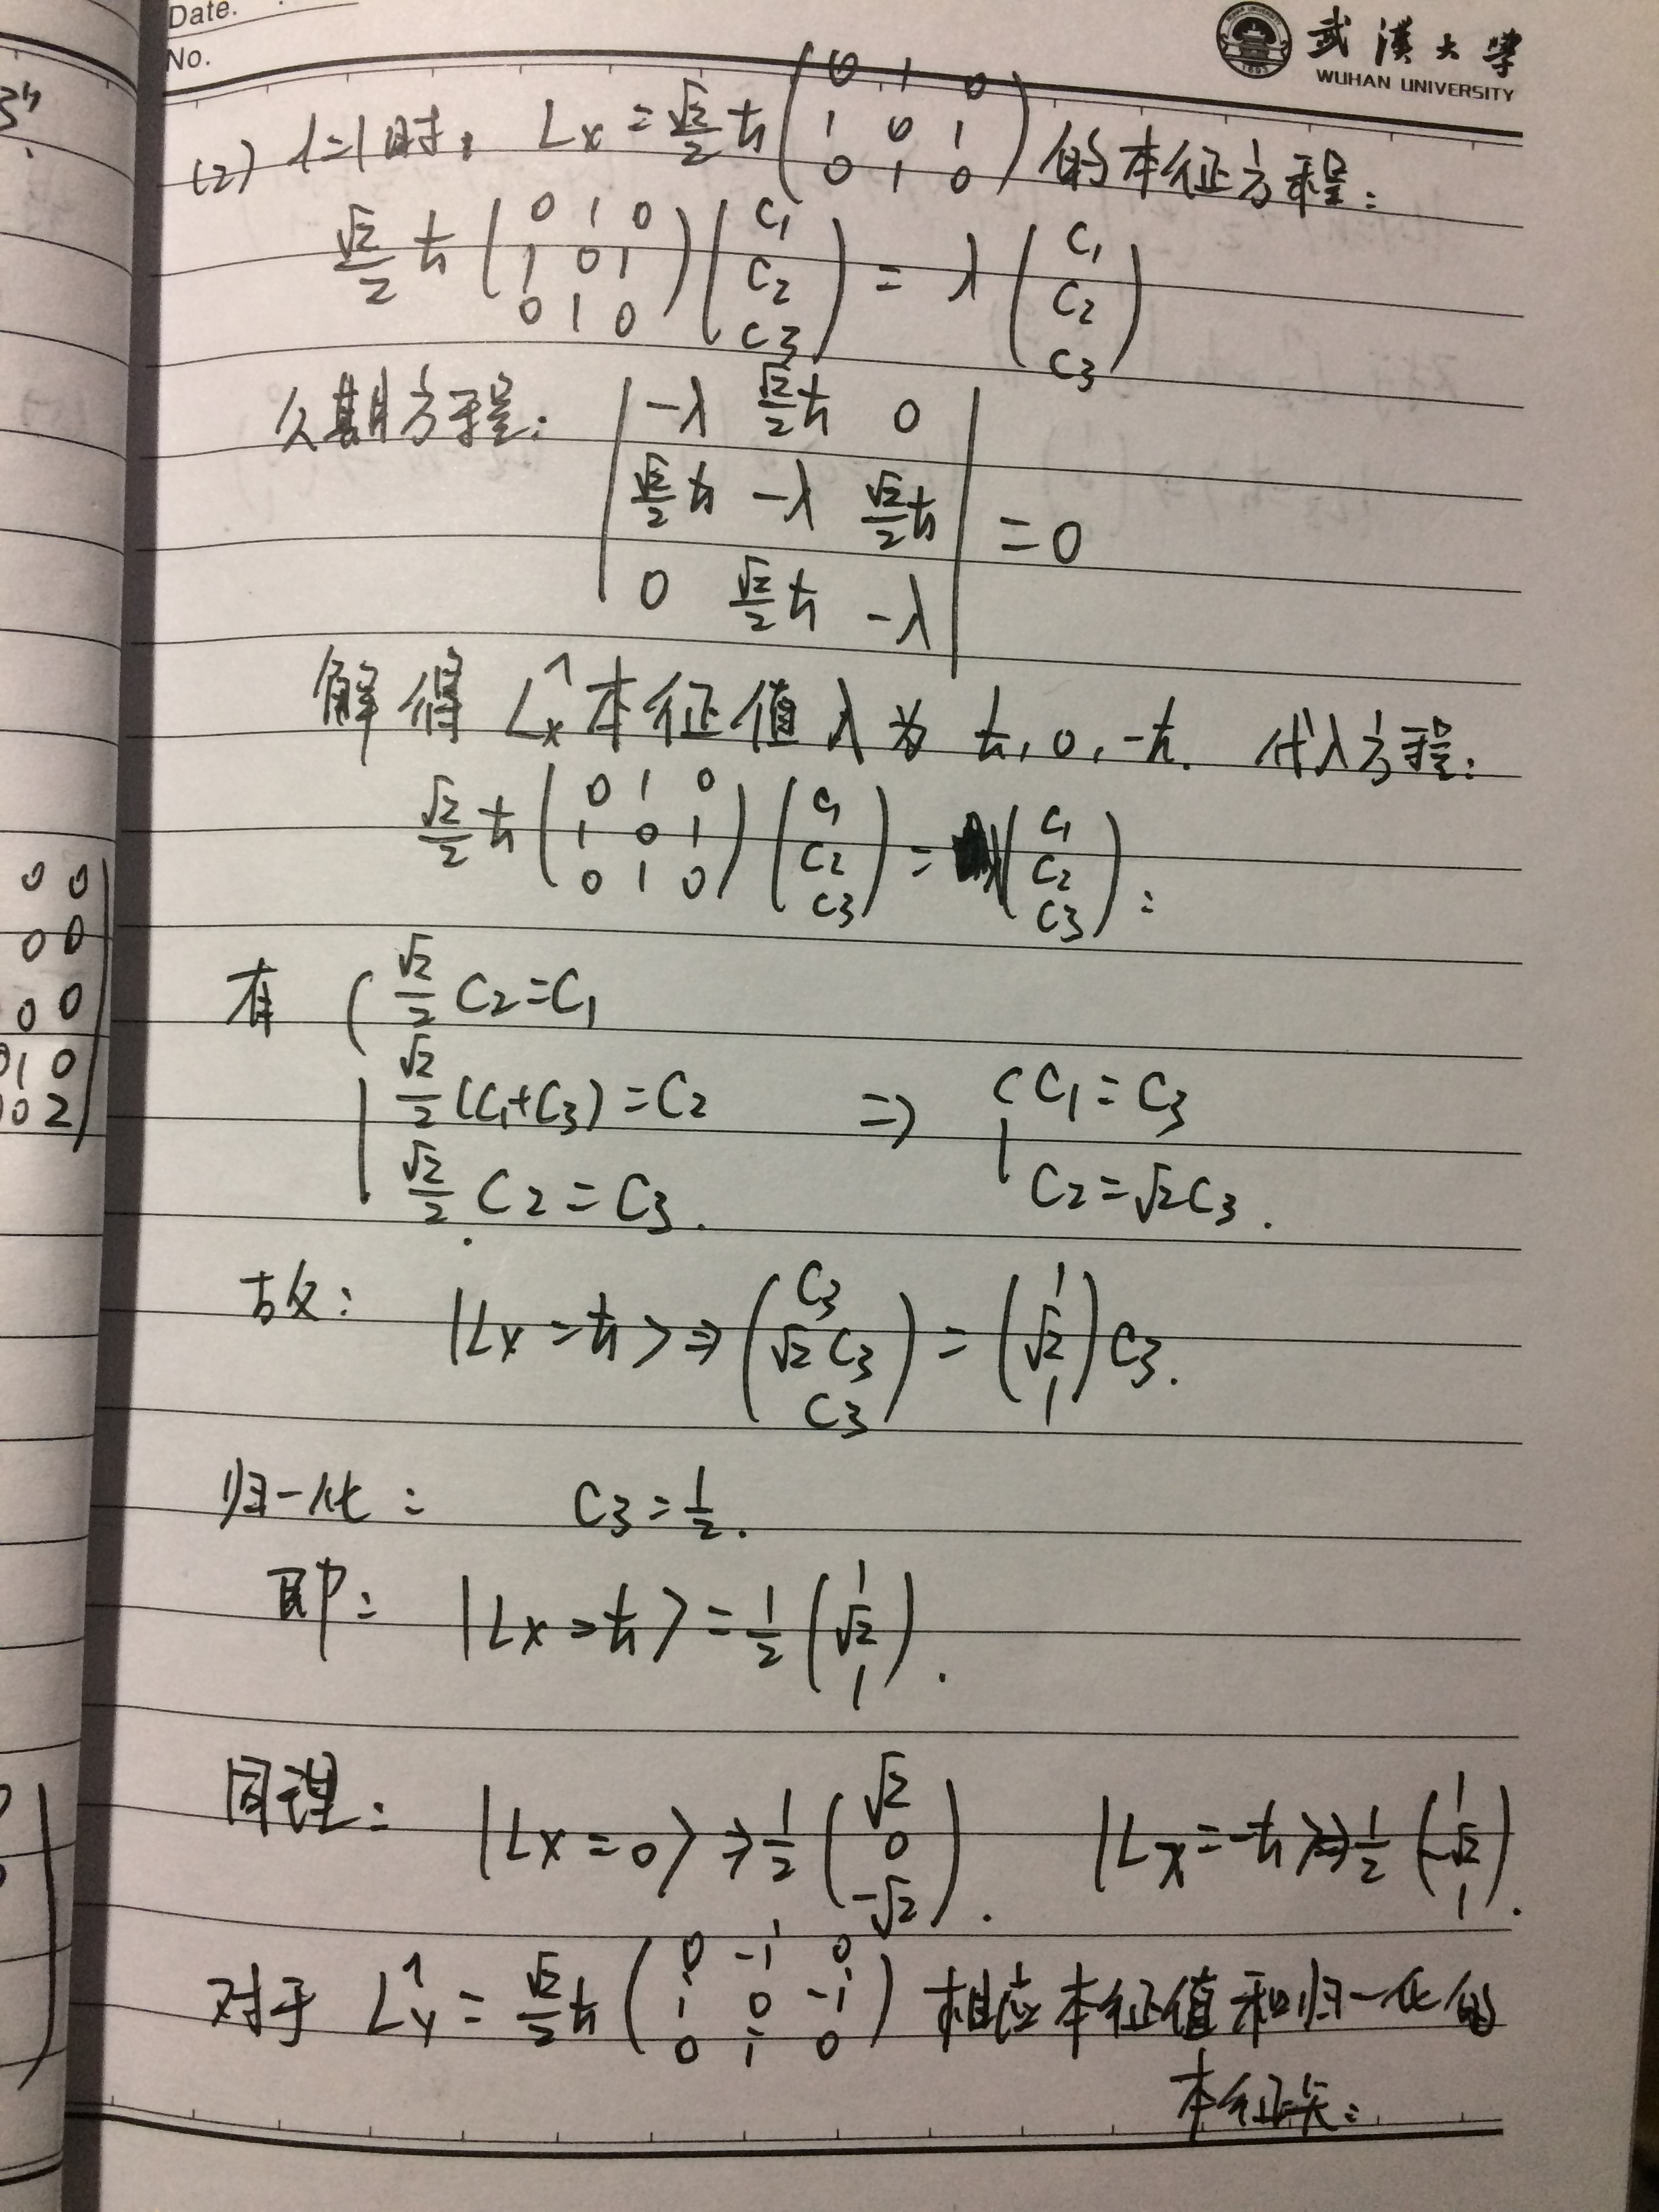 Date.
No.
武漢大學
WUHAN UNIVERSITY
(2) l=1时, Lx = √2/2 ħ (0 1 0; 1 0 1; 0 1 0) 的本征方程:
√2/2 ħ (0 1 0; 1 0 1; 0 1 0) (C1; C2; C3) = λ (C1; C2; C3)
久期方程: |-λ √2/2 ħ 0; √2/2 ħ -λ √2/2 ħ; 0 √2/2 ħ -λ| = 0
解得 L̂x 本征值 λ 为 ħ, 0, -ħ. 代入方程:
√2/2 ħ (0 1 0; 1 0 1; 0 1 0) (C1; C2; C3) = λ (C1; C2; C3):
有 { √2/2 C2 = C1
√2/2 (C1+C3) = C2 ⇒ { C1 = C3
√2/2 C2 = C3. C2 = √2 C3.
故: |Lx = ħ> ⇒ (C3; √2 C3; C3) = (1; √2; 1) C3.
归一化: C3 = 1/2.
即: |Lx = ħ> = 1/2 (1; √2; 1).
同理: |Lx = 0> ⇒ 1/2 (√2; 0; -√2). |Lx = -ħ> ⇒ 1/2 (1; -√2; 1).
对于 L̂y = √2/2 ħ (0 -i 0; i 0 -i; 0 i 0) 相应本征值和归一化的
本征矢:
0 0
0 0
0 0
0 1 0
0 0 2